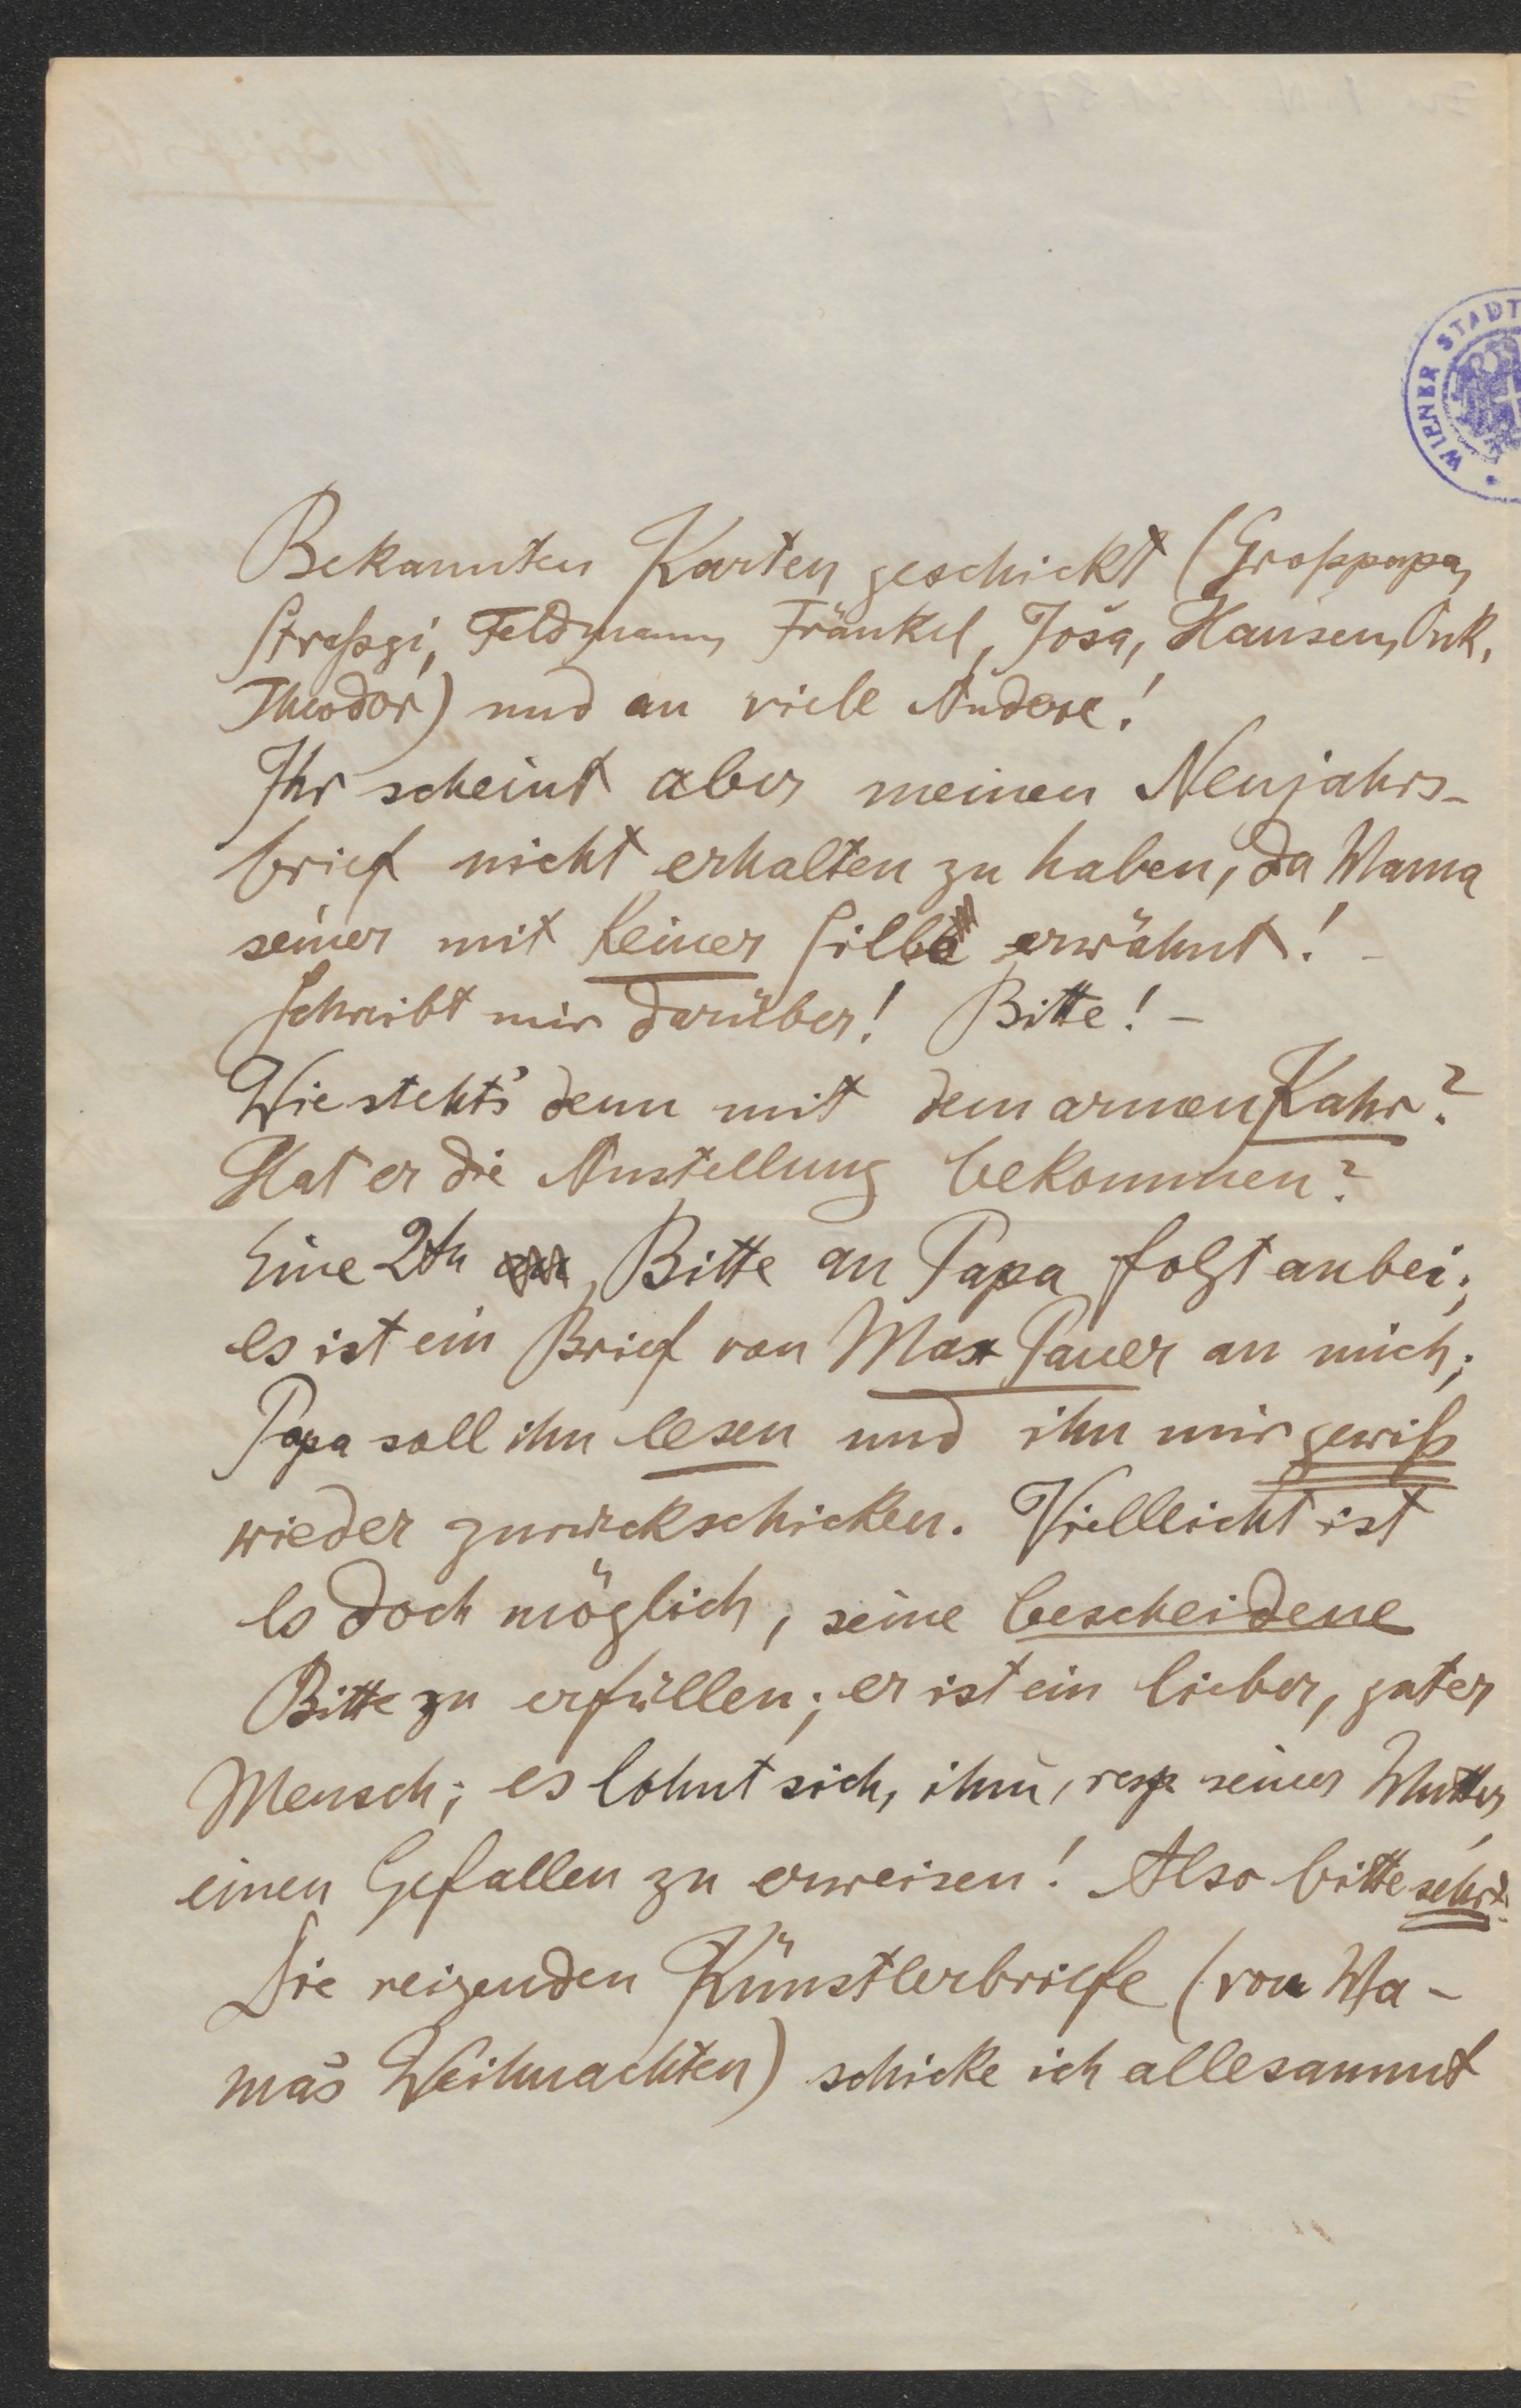 WIENER STADT
Bekannten Karten geschickt (Großpapa,
Feldmann, Fränkel, Josa, Hansen, Onk.
Theodor) und an viele Andere!
Ihr scheint aber meinen Neujahrs-
brief nicht erhalten zu haben, da Mama
seiner mit keiner Silbe erwähnt! -
Schreibt mir darüber! Bitte! -
Wie steht's denn mit dem armen Kahr?
Hat er die Anstellung bekommen?
Eine 2te Bitte an Papa folgt anbei;
es ist ein Brief von Max Pauer an mich;
Papa soll ihn lesen und ihn mir gewiß
wieder zurückschicken. Vielleicht ist
es doch möglich, seine bescheidene
Bitte zu erfüllen; er ist ein lieber, guter
Mensch; es lohnt sich, ihm, resp seiner Mutter,
einen Gefallen zu erweisen! Also bitte sehr!
Die reizenden Künstlerbriefe (von Ma-
ma's Weihnachten) schicke ich allesammt